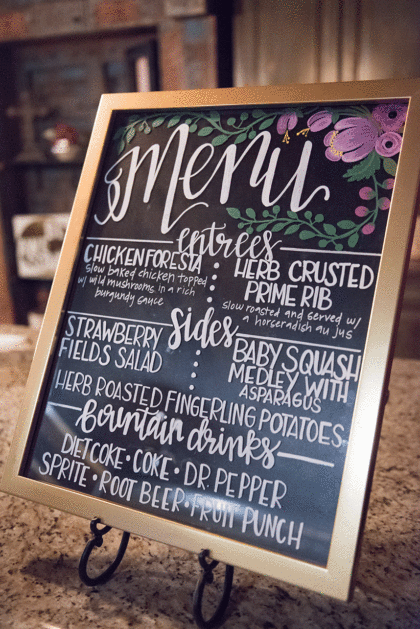 Menu
entrées
CHICKEN FORESTA
slow baked chicken topped
w/ wild mushrooms in a rich
burgundy sauce
HERB CRUSTED
PRIME RIB
slow roasted and served w/
a horseradish au jus
Sides
STRAWBERRY
FIELDS SALAD
BABY SQUASH
MEDLEY WITH
ASPARAGUS
HERB ROASTED FINGERLING POTATOES
fountain drinks
DIET COKE • COKE • DR. PEPPER
SPRITE • ROOT BEER • FRUIT PUNCH